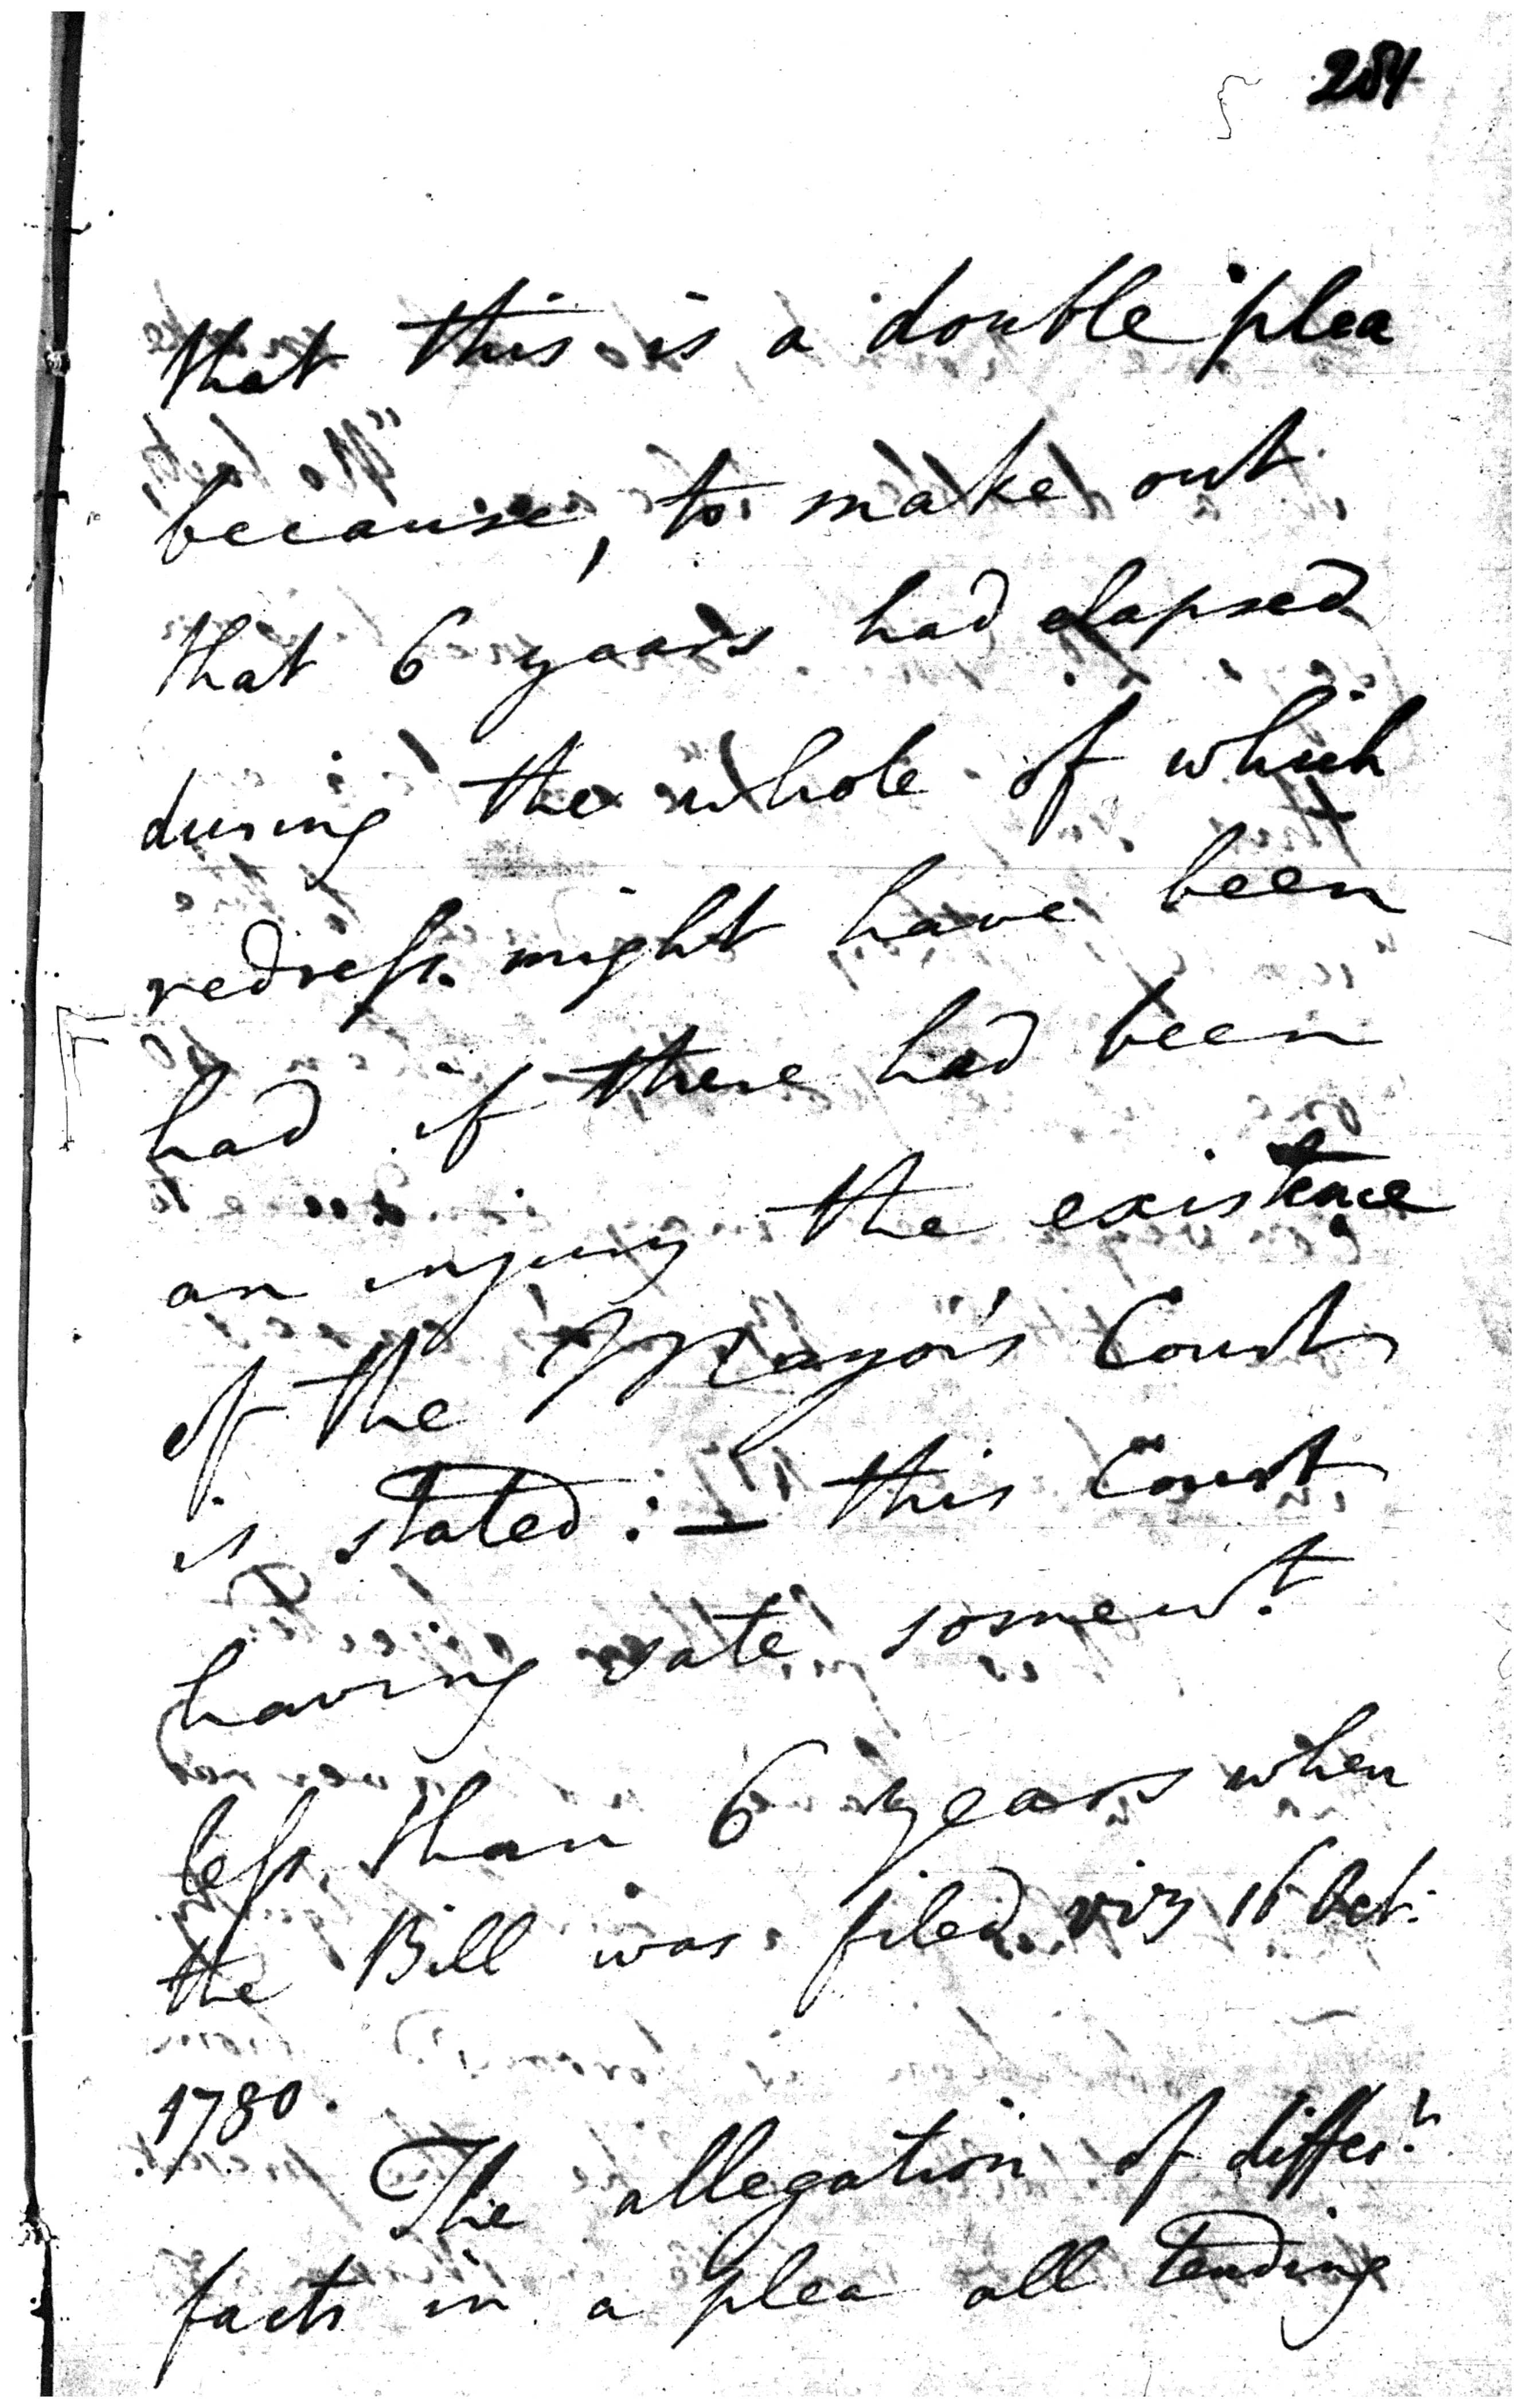 284
that this is a double plea
because, to make out
that 6 years had elapsed
during the whole of which
redress might have been
had if there had been
an injury the existence
of the Mayor's Court
is stated :— this Court
having sate somewt.
less than 6 years when
the Bill was filed viz 16 Oct.
1780.
The allegation of differt.
facts in a plea all tending